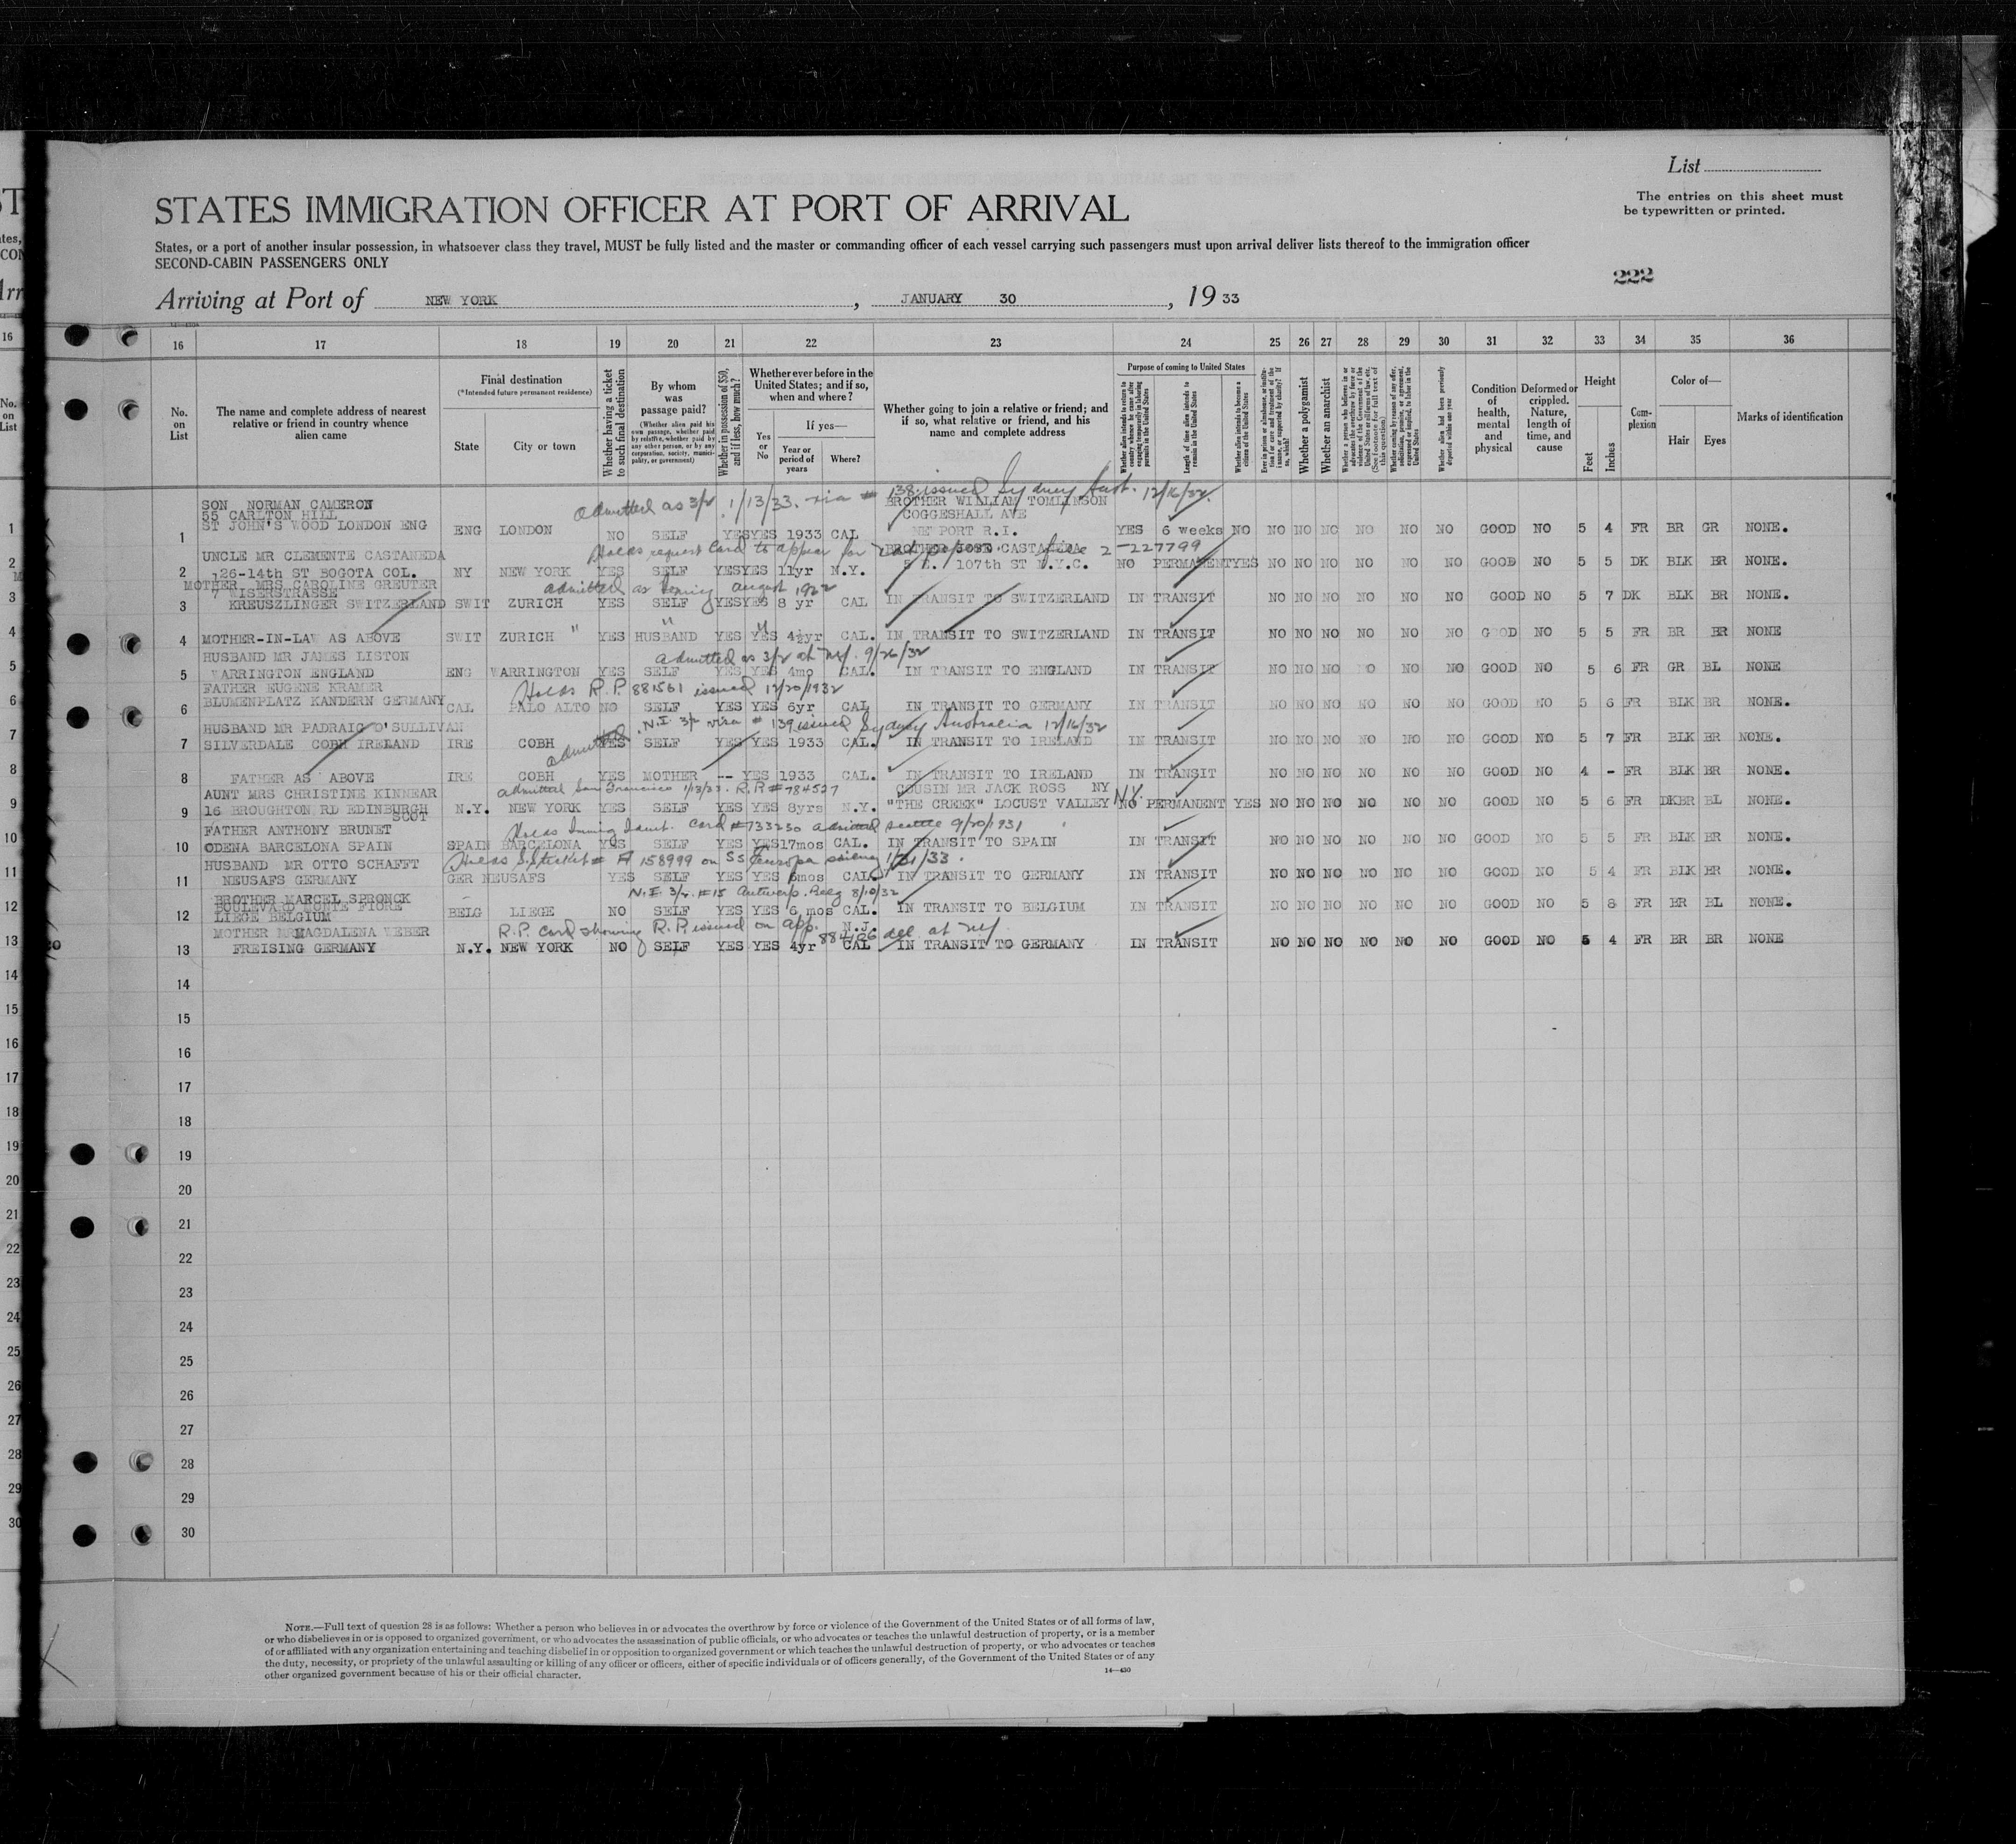 List
The entries on this sheet must
be typewritten or printed.
STATES IMMIGRATION OFFICER AT PORT OF ARRIVAL
States, or a port of another insular possession, in whatsoever class they travel, MUST be fully listed and the master or commanding officer of each vessel carrying such passengers must upon arrival deliver lists thereof to the immigration officer
SECOND-CABIN PASSENGERS ONLY
222
Arriving at Port of NEW YORK, JANUARY 30, 1933
16 17 18 19 20 21 22 23 24 25 26 27 28 29 30 31 32 33 34 35 36
No. on List
The name and complete address of nearest relative or friend in country whence alien came
Final destination
(*Intended future permanent residence)
State
City or town
Whether having a ticket to such final destination
By whom was passage paid?
(Whether alien paid his own passage, whether paid by relative, whether paid by any other person, or by any corporation, society, municipality, or government)
Whether in possession of $50, and if less, how much?
Whether ever before in the United States; and if so, when and where?
Yes or No
If yes—
Year or period of years
Where?
Whether going to join a relative or friend; and if so, what relative or friend, and his name and complete address
Purpose of coming to United States
Whether alien intends to return to country whence he came after engaging temporarily in laboring pursuits in the United States
Length of time alien intends to remain in the United States
Whether alien intends to become a citizen of the United States
Whether a polygamist
Whether an anarchist
Whether alien had been previously deported within one year
Condition of health, mental and physical
Deformed or crippled. Nature, length of time, and cause
Height
Feet
Inches
Complexion
Color of—
Hair
Eyes
Marks of identification
SON NORMAN CAMERON
55 CARLTON HILL
admitted as 3/2 1/13/33. via # 138 issued Sydney Aust. 12/16/32.
BROTHER WILLIAM TOMLINSON
COGGESHALL AVE
1 ST JOHN'S WOOD LONDON ENG ENG LONDON NO SELF YES YES 1933 CAL NEWPORT R.I. YES 6 weeks NO NO NO NO NO NO NO GOOD NO 5 4 FR BR GR NONE.
UNCLE MR CLEMENTE CASTANEDA
Holds request card to appear for file 2-227799
BROTHER JOSE CASTANEDA
2 126-14th ST BOGOTA COL. NY NEW YORK YES SELF YES YES 11yr N.Y. 107th ST N.Y.C. NO PERMANENT YES NO NO NO NO NO NO GOOD NO 5 5 DK BLK BR NONE.
MOTHER MRS CAROLINE GREUTER
7 WISERSTRASSE
admitted as August 1922
3 KREUSZLINGER SWITZERLAND SWIT ZURICH YES SELF YES YES 8 yr CAL IN TRANSIT TO SWITZERLAND IN TRANSIT NO NO NO NO NO NO GOOD NO 5 7 DK BLK BR NONE.
4 MOTHER-IN-LAW AS ABOVE SWIT ZURICH " YES HUSBAND " YES YES " 4½yr CAL. IN TRANSIT TO SWITZERLAND IN TRANSIT NO NO NO NO NO NO GOOD NO 5 5 FR BR BR NONE
HUSBAND MR JAMES LISTON
admitted as 3/2 at NY. 9/26/32
5 WARRINGTON ENGLAND ENG WARRINGTON YES SELF YES YES 4mo CAL. IN TRANSIT TO ENGLAND IN TRANSIT NO NO NO NO NO NO GOOD NO 5 6 FR GR BL NONE
FATHER EUGENE KRAMER
Holds R.P. 881561 issued 12/20/1932
6 BLUMENPLATZ KANDERN GERMANY CAL PALO ALTO NO SELF YES YES 6yr CAL IN TRANSIT TO GERMANY IN TRANSIT NO NO NO NO NO NO GOOD NO 5 6 FR BLK BR NONE.
HUSBAND MR PADRAIG O'SULLIVAN
admitted N.I. 3/2 visa # 139 issued Sydney Australia 12/16/32
7 SILVERDALE COBH IRELAND IRE COBH YES SELF YES YES 1933 CAL. IN TRANSIT TO IRELAND IN TRANSIT NO NO NO NO NO NO GOOD NO 5 7 FR BLK BR NONE.
8 FATHER AS ABOVE IRE COBH YES MOTHER -- YES 1933 CAL. IN TRANSIT TO IRELAND IN TRANSIT NO NO NO NO NO NO GOOD NO 4 - FR BLK BR NONE.
AUNT MRS CHRISTINE KINNEAR
admitted San Francisco 1/13/33. R.P. # 784527
COUSIN MR JACK ROSS NY
9 16 BROUGHTON RD EDINBURGH SCOT N.Y. NEW YORK YES SELF YES YES 8yrs N.Y. "THE CREEK" LOCUST VALLEY N.Y. NO PERMANENT YES NO NO NO NO NO NO GOOD NO 5 6 FR DKBR BL NONE.
FATHER ANTHONY BRUNET
Holds Immig Ident. Card #733230 admitted Seattle 9/20/1931
10 ODENA BARCELONA SPAIN SPAIN BARCELONA YES SELF YES YES 17mos CAL. IN TRANSIT TO SPAIN IN TRANSIT NO NO NO NO NO NO GOOD NO 5 5 FR BLK BR NONE.
HUSBAND MR OTTO SCHAFFT
Holds S.S ticket # A 158999 on SS Europa sailing 1/31/33.
11 NEUSAFS GERMANY GER NEUSAFS YES SELF YES YES 6mos CAL. IN TRANSIT TO GERMANY IN TRANSIT NO NO NO NO NO NO GOOD NO 5 4 FR BLK BR NONE.
BROTHER MARCEL SPRONCK
BOULEVARD MONTE FIORE
N.I. 3/2. #15 Antwerp. Belg 8/10/32
12 LIEGE BELGIUM BELG LIEGE NO SELF YES YES 6 mos CAL. IN TRANSIT TO BELGIUM IN TRANSIT NO NO NO NO NO NO GOOD NO 5 8 FR BR BL NONE.
MOTHER MAGDALENA WEBER
R.P. card showing R.P. issued on app. 884166 del at NY
N.J.
13 FREISING GERMANY N.Y. NEW YORK NO SELF YES YES 4yr CAL IN TRANSIT TO GERMANY IN TRANSIT NO NO NO NO NO NO GOOD NO 5 4 FR BR BR NONE
14
15
16
17
18
19
20
21
22
23
24
25
26
27
28
29
30
NOTE.—Full text of question 28 is as follows: Whether a person who believes in or advocates the overthrow by force or violence of the Government of the United States or of all forms of law,
or who disbelieves in or is opposed to organized government, or who advocates the assassination of public officials, or who advocates or teaches the unlawful destruction of property, or is a member
of or affiliated with any organization entertaining and teaching disbelief in or opposition to organized government or which teaches the unlawful destruction of property, or who advocates or teaches
the duty, necessity, or propriety of the unlawful assaulting or killing of any officer or officers, either of specific individuals or of officers generally, of the Government of the United States or of any
other organized government because of his or their official character.
14—430